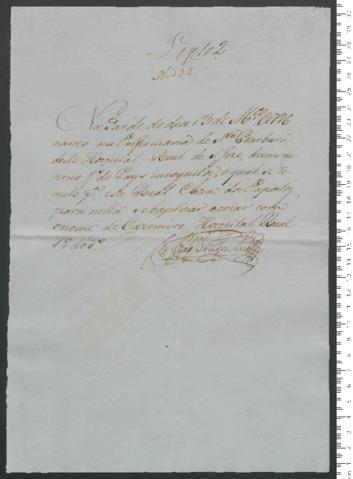 L 1 p 102
N. 334
Na tarde do dia 13 de M.ço 1796
nasceo na Enfermaria de S.ta Barbara
deste Hospital Real de S. Joze, hum me
nino f.o de Pays incognitos, o qual se re
mete p.a a Real Caza dos Expostos,
para nella se baptizar e criar com
o nome de Hospital Real
18 do d.o